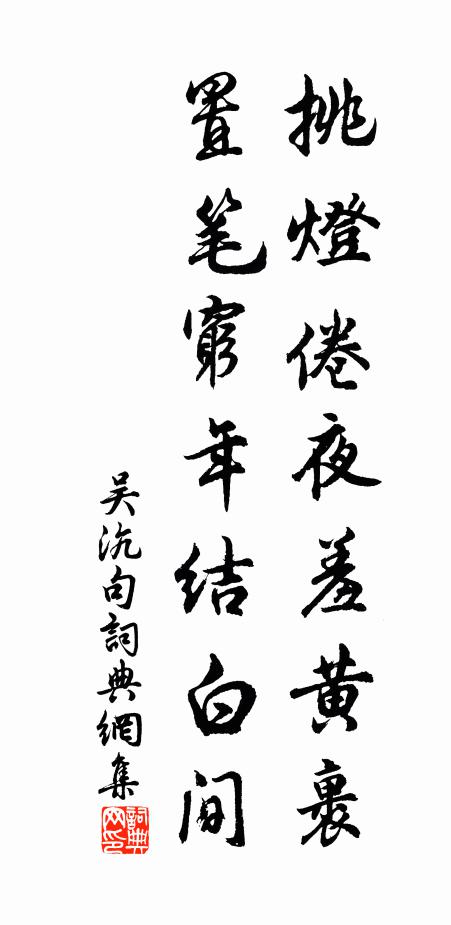 挑燈倦夜羞黄裹
置笔窮年結白间
吴沆句詞典網集
詞典网印